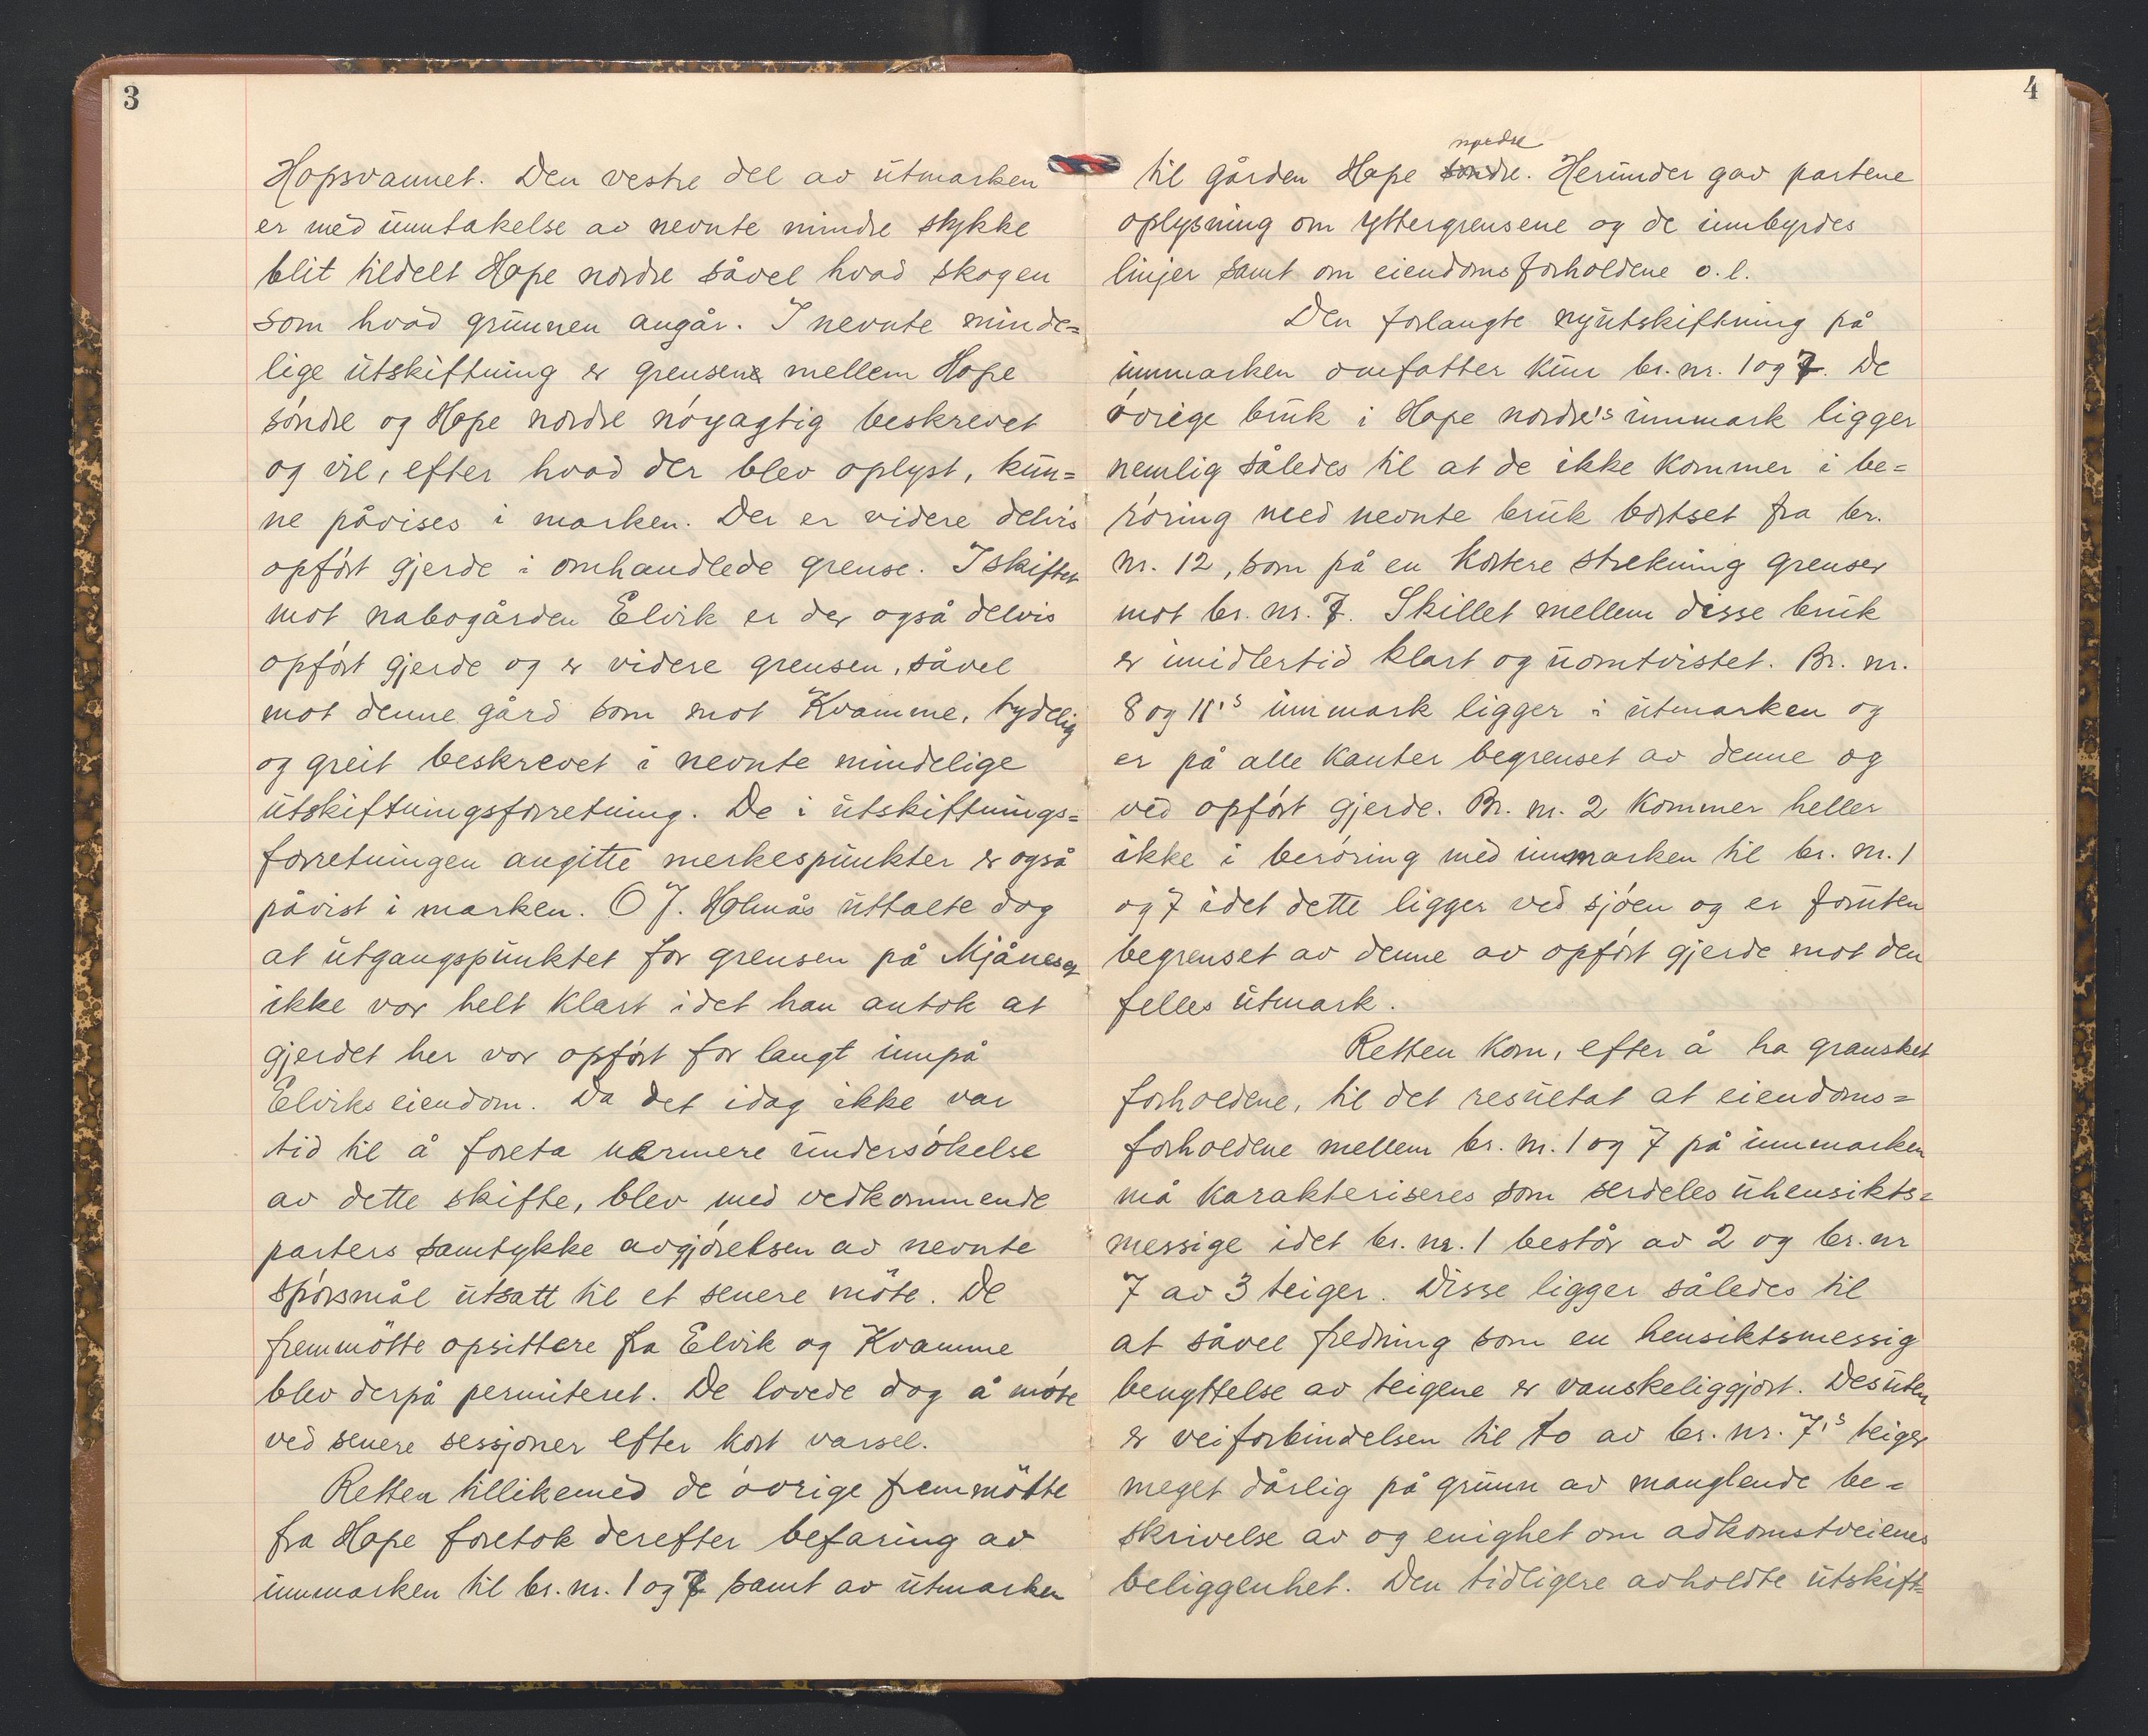 3
Hopsvannet. Den vestre del av utmarken
er med unntakelse av nevnte mindre stykke
blit tildelt Hope nordre såvel hvad skogen
som hvad grunnen angår. I nevnte minde=
lige utskiftning er grensene mellem Hope
söndre og Hope nordre nöyagtig beskrevet
og vil, efter hvad der blev oplyst, kun=
ne påvises i marken. Der er videre delvis
opfört gjerde i omhandlede grense. I skiftet
mot nabogården Elvik er der også delvis
opfört gjerde og er videre grensen, såvel
mot denne gård som mot Kvamme, tydelig
og greit beskrevet i nevnte mindelige
utskiftningsforretning. De i utskiftnings=
forretningen angitte merkespunkter er også
påvist i marken. O J. Holmås uttalte dog
at utgangspunktet for grensen på Mjåneset
ikke var helt klart idet han antok at
gjerdet her var opfört for langt innpå
Elviks eiendom. Da det idag ikke var
tid til å foreta nærmere undersökelse
av dette skifte, blev med vedkommende
parters samtykke avgjörelsen av nevnte
spörsmål utsatt til et senere möte. De
fremmötte opsittere fra Elvik og Kvamme
blev derpå permiteret. De lovede dog å möte
ved senere sessjoner efter kort varsel.
Retten tillikemed de övrige fremmötte
fra Hope foretok derefter befaring av
innmarken til br. nr. 1 og 7 samt av utmarken
4
nordre
til gården Hope söndre. Herunder gav partene
oplysning om yttergrensene og de innbyrdes
linjer samt om eiendomsforholdene o. l.
Den forlangte nyutskiftning på
innmarken omfatter kun br. nr. 1 og 7. De
övrige bruk i Hope nordre's innmark ligger
nemlig således til at de ikke kommer i be=
röring med nevnte bruk bortset fra br.
nr. 12, som på en kortere strekning grenser
mot br. nr. 7. Skillet mellem disse bruk
er imidlertid klart og uomtvistet. Br. nr.
8 og 11's innmark ligger i utmarken og
er på alle kanter begrenset av denne og
ved opfört gjerde. Br. nr. 2 kommer heller
ikke i beröring med innmarken til br. nr. 1
og 7 idet dette ligger ved sjöen og er foruten
begrenset av denne av opfört gjerde mot den
felles utmark.
Retten kom, efter å ha gransket
forholdene, til det resultat at eiendoms=
forholdene mellem br. nr. 1 og 7 på innmarken
må karakteriseres som serdeles uhensikts=
messige idet br. nr. 1 består av 2 og br. nr
7 av 3 teiger. Disse ligger således til
at såvel fredning som en hensiktsmessig
benyttelse av teigene er vanskeliggjort. Desuten
er veiforbindelsen til to av br. nr. 7's teiger
meget dårlig på grunn av manglende be=
skrivelse av og enighet om adkomstveienes
beliggenhet. Den tidligere avholdte utskift=